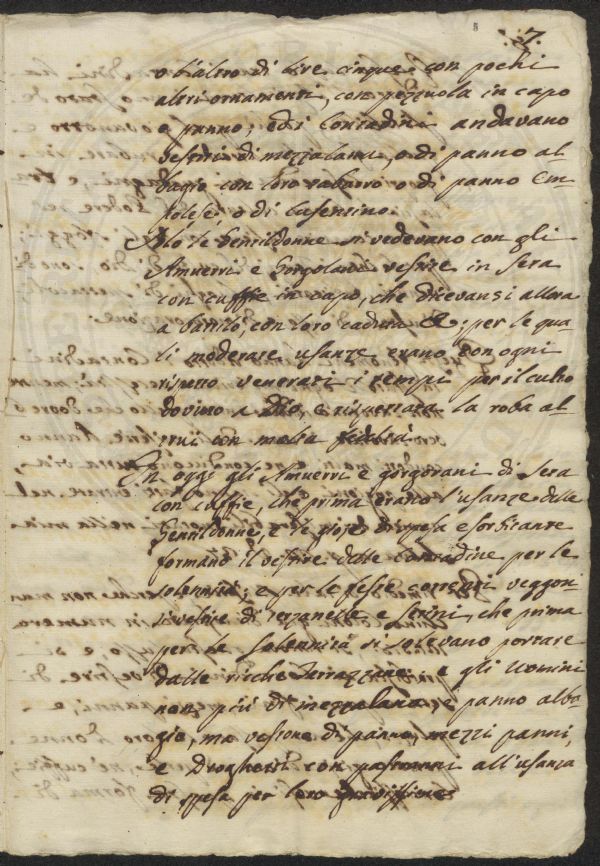 7.
o l'altro di lire cinque con pochi
altri ornamenti, con pezzuola in capo
e panno, ed i Contadini andavano
vestiti di mezzalana, o di panno al-
bagio con loro o di panno Em-
polese, o di Casentino.
le Gentildonne si vedevano con gli
Amuerri e Gorgolani vestire in seta
con cuffie in capo, che dicevansi allora
a con loro caduta per le qua-
li moderate usanze erano con ogni
rispetto venerati i tempi per il culto
dovuto a Dio, e rispettata la roba al-
trui con molta fedeltà.
In oggi gli Amuerri e gorgorani di seta
con cuffie, che prima erano l'usanze delle
Gentildonne, e le gioje di spesa e
formano il vestire delle Contadine per le
solennità; e per le feste correnti veggon-
si vestire di terzanelle e che prima
per le solennità si solevano portare
dalle ricche Terrazzane e gli Uomini
non più di mezzalana, e panno alba-
gio, ma vestono di panno, mezzi panni,
e Droghetti con pastrani all'usanza
di spesa per loro